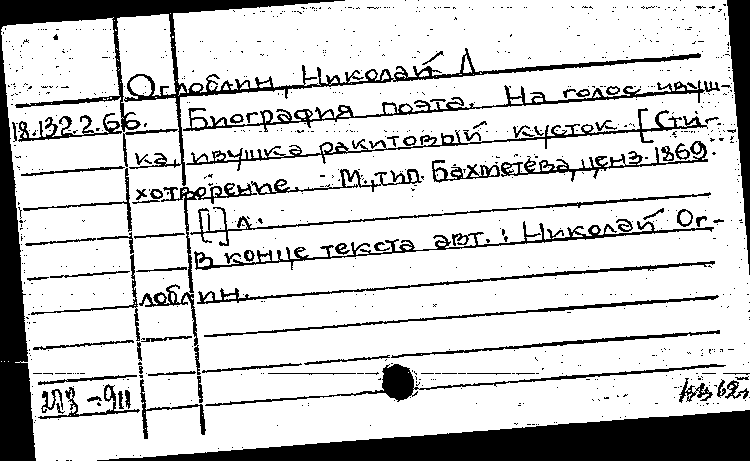 Оглоблин, Николай Л
18.132.2.66. Биография поэта. На голос ивуш-
ка, ивушка ракитовый кусток [Сти-
хотворение. - М., тип. Бахметева, ценз. 1869.
[1] л.
В конце текста авт.: Николай Ог-
лоблин.